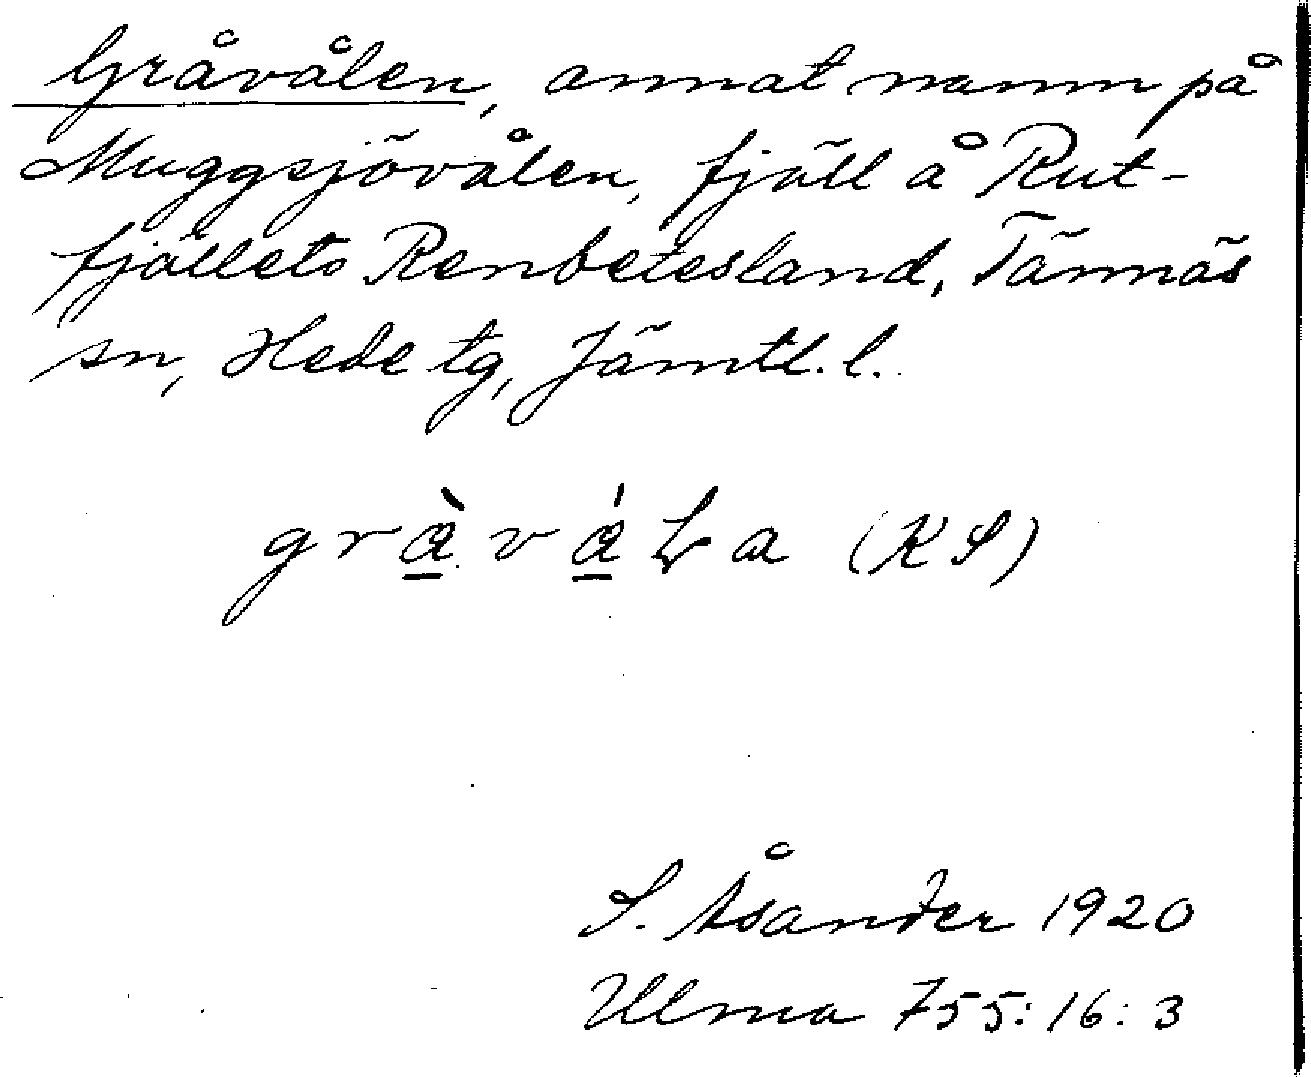 Gråvålen, annat namn på
Muggsjövålen, fjäll å Rut-
fjällets Renbetesland, Tännäs
sn, Hede tg, Jämtl. l.
græ̱̀vǽ̱Ła (KS)
S. Åsander 1920
Ulma 755:16:3